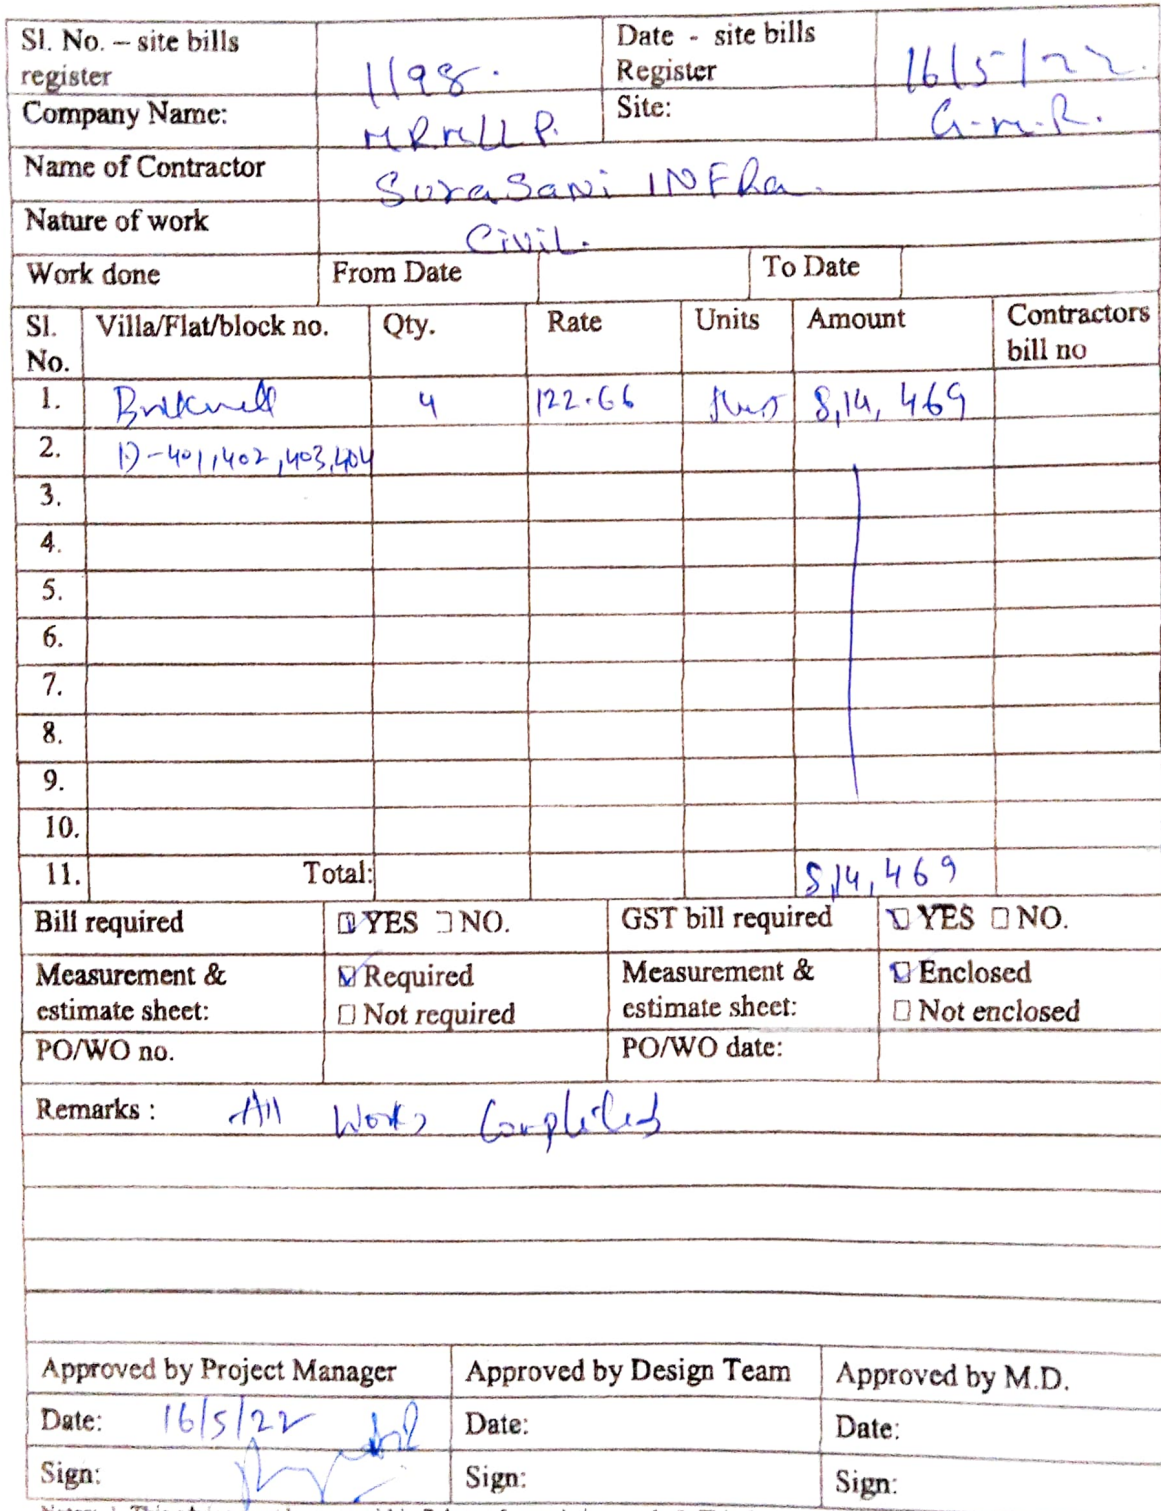 Sl. No. – site bills register 1198. Date - site bills Register 16/5/22.
Company Name: MRMLLP. Site: G.M.R.
Name of Contractor SuraSani INFRa.
Nature of work Civil.
Work done From Date To Date
Sl. No. Villa/Flat/block no. Qty. Rate Units Amount Contractors bill no
1. 4 122.66 8,14,469
2. D-401,402,403,404
3.
4.
5.
6.
7.
8.
9.
10.
11. Total: 8,14,469
Bill required YES NO. GST bill required YES NO.
Measurement & estimate sheet: Required Not required Measurement & estimate sheet: Enclosed Not enclosed
PO/WO no. PO/WO date:
Remarks : All Works Completed
Approved by Project Manager Approved by Design Team Approved by M.D.
Date: 16/5/22 Date: Date:
Sign: Sign: Sign: